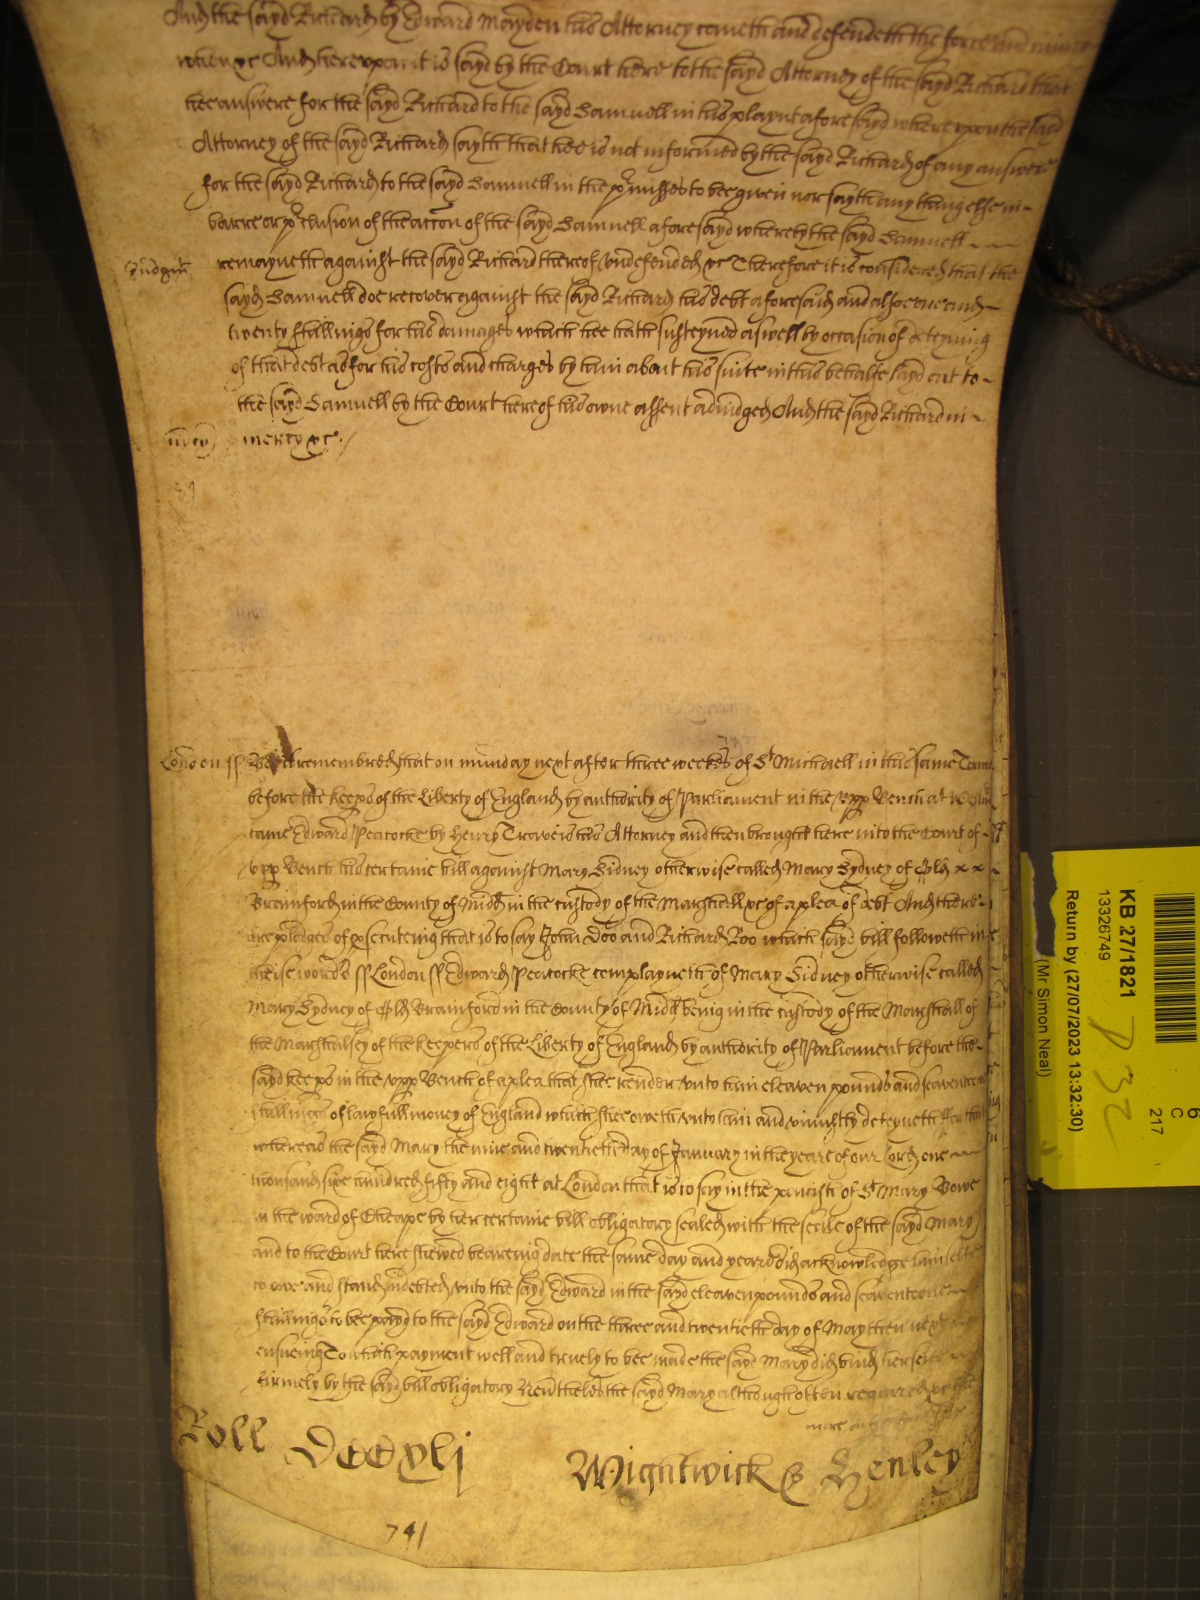 And the sayd Richard by Edward Mayden his Attorney cometh and defendeth the force and iniury
when &c And hereupon it is sayd by the Court here to the sayd Attorney of the sayd Richard that
hee answere for the sayd Richard to the sayd Samuell in his playnt aforesayd whereupon the sayd
Attorney of the sayd Richard sayth that hee is not informed by the sayd Richard of any answere
for the sayd Richard to the sayd Samuell in the p'misses to bee given nor sayth any thing else in
barre or p'clusion of the accon of the sayd Samuell aforesayd whereby the sayd Samuell
Judgmt remayneth against the sayd Richard thereof undefended &c Therefore it is considered that the
sayd Samuell doe recover against the sayd Richard his debt aforesaid and alsoe one and
twenty shillings for his damages which hee hath susteyned aswell by occasion of deteyning
of that debt as for his costs and charges by him about his suite in this behalfe layd out to
the sayd Samuell by the Court here of his owne assent adiudged And the sayd Richard in
mcy mercy &c.
London ss Bee it remembred that on munday next after three weekes of St Michaell in this same Terme
before the keeps of the Liberty of England by authority of Parliament in the upp Bench at Westm
came Edward Peacocke by Henry Travers his Attorney and then brought here into the Court of
upp Bench his certaine bill against Mary Sidney otherwise called Mary Sydney of Old x x
Brainford in the County of Midd in the custody of the Marshall &c of a plea of debt And there
are pledges of p'secuteing that is to say John Doo and Richard Roo which sayd bill followeth in
theise words ss London ss Edward Peacocke complayneth of Mary Sidney otherwise called
Mary Sydney of Old Brainford in the County of Midd being in the custody of the Marshall of
the Marshalsey of the keepers of the Liberty of England by authority of Parliament before the
sayd keeps in the upp Bench of a plea that shee render unto him eleaven pounds and seaventeene
shillings of lawfull money of England which shee oweth unto him and uniustly deteyneth for that
whereas the sayd Mary the nine and twentieth day of January in the yeare of our Lord one
thousand six hundred fifty and eight at London that is to say in the parish of St Mary Bowe
in the ward of Cheape by her certaine bill obligatory sealed with the seale of the sayd Mary
and to the Court here shewed beareing date the same day and yeare did acknowledge himselfe
to owe and stand indebted unto the sayd Edward in the sayd eleaven pounds and seaventeene
shillings to bee payd to the sayd Edward on the three and twentieth day of May then next
ensueing To which payment well and truely to bee made the sayd Mary did bind her selfe
firmely by the sayd bill obligatory Neverthelesse the sayd Mary although often required &c the
more
Roll DCCxlj Wightwick & Henley
741
KB 27/1821
13326749
Return by (27/07/2023 13:32:30)
(Mr Simon Neal)
C
217